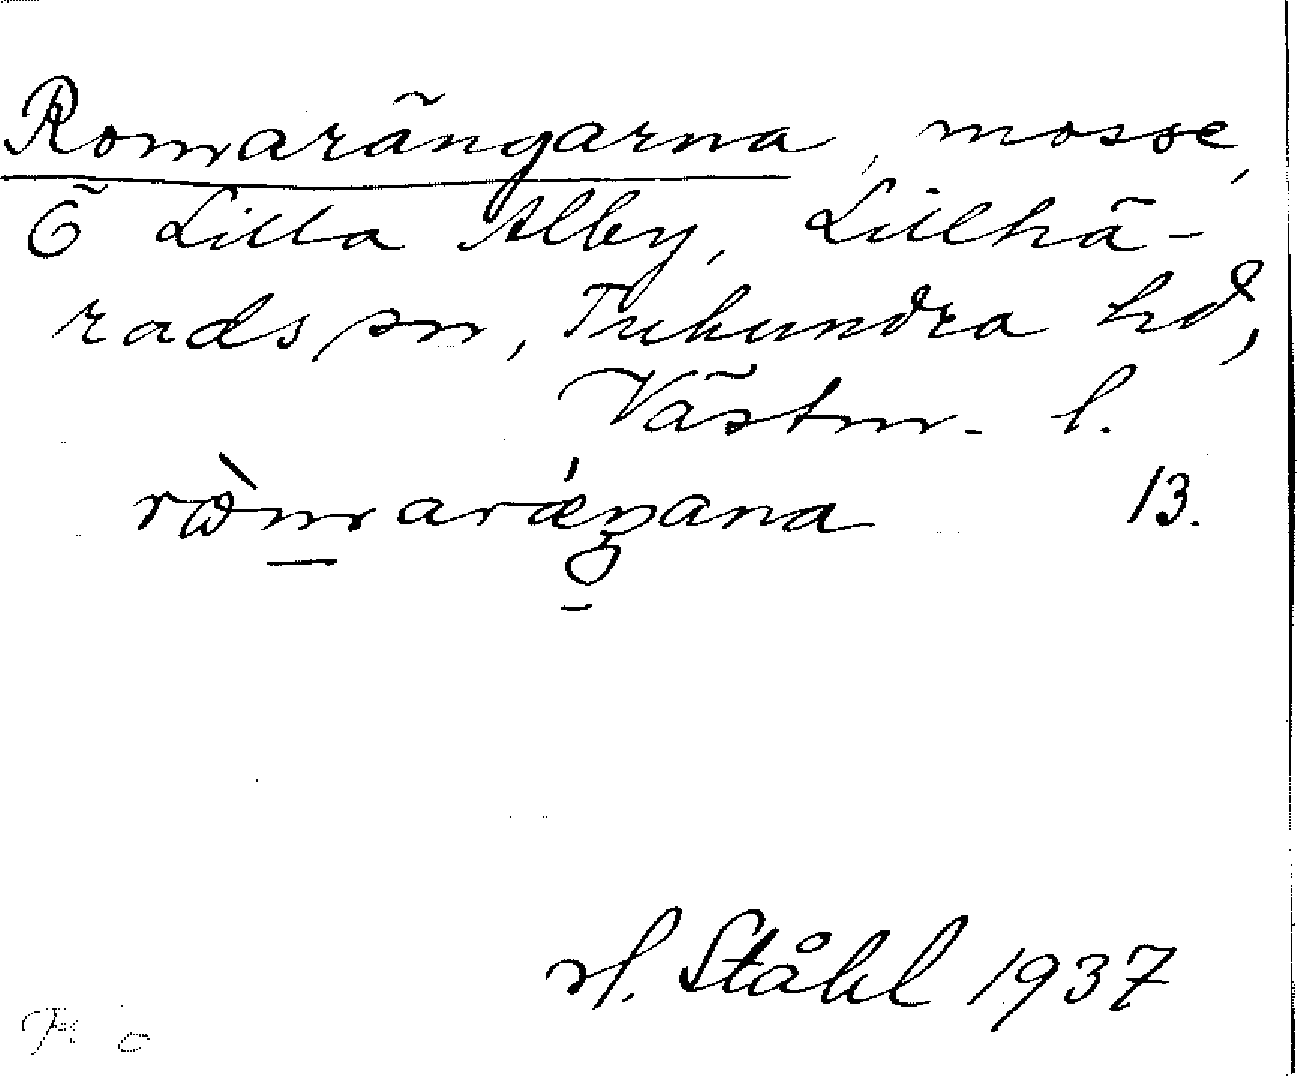 Romarängarna, mosse,
Ö Lilla Alby, Lillhä-
rads sn, Tuhundra hd,
Västm. l.
ròmaráŋana 13.
H. Ståhl 1937